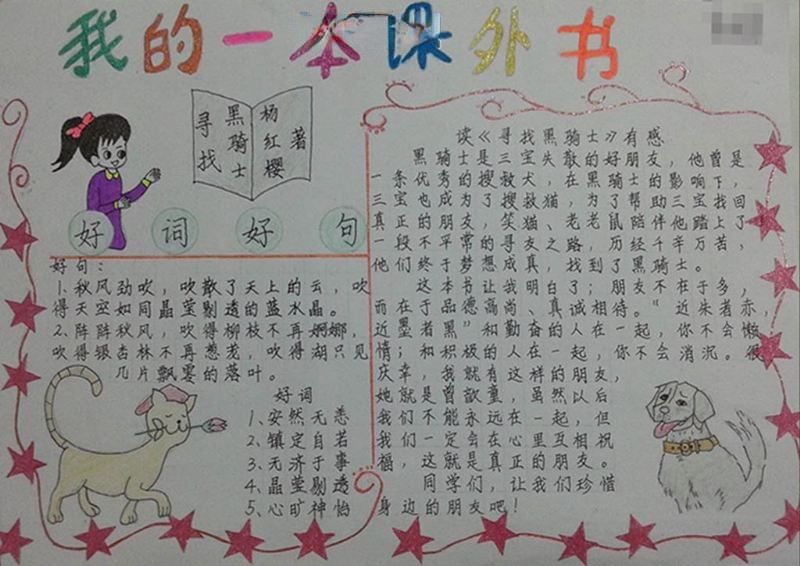 我的一本课外书
寻找
黑骑士
杨红樱
著
好词好句
好句：
1、秋风劲吹，吹散了天上的云，吹
得天空如同晶莹剔透的蓝水晶。
2、阵阵秋风，吹得柳枝不再婀娜，
吹得银杏林不再葱茏，吹得湖只见
几片飘零的落叶。
好词
1、安然无恙
2、镇定自若
3、无济于事
4、晶莹剔透
5、心旷神怡
读《寻找黑骑士》有感
黑骑士是三宝失散的好朋友，他曾是
一条优秀的搜救犬，在黑骑士的影响下，
三宝也成为了搜救猫，为了帮助三宝找回
真正的朋友，笑猫、老老鼠陪伴他踏上了
一段不平常的寻友之路，历经千辛万苦，
他们终于梦想成真，找到了黑骑士。
这本书让我明白了；朋友不在于多，
而在于品德高尚、真诚相待。“近朱者赤，
近墨者黑”和勤奋的人在一起，你不会懒
惰；和积极的人在一起，你不会消沉。很
庆幸，我就有这样的朋友，
她就是曾歆童，虽然以后
我们不能永远在一起，但
我们一定会在心里互相祝
福，这就是真正的朋友。
同学们，让我们珍惜
身边的朋友吧！